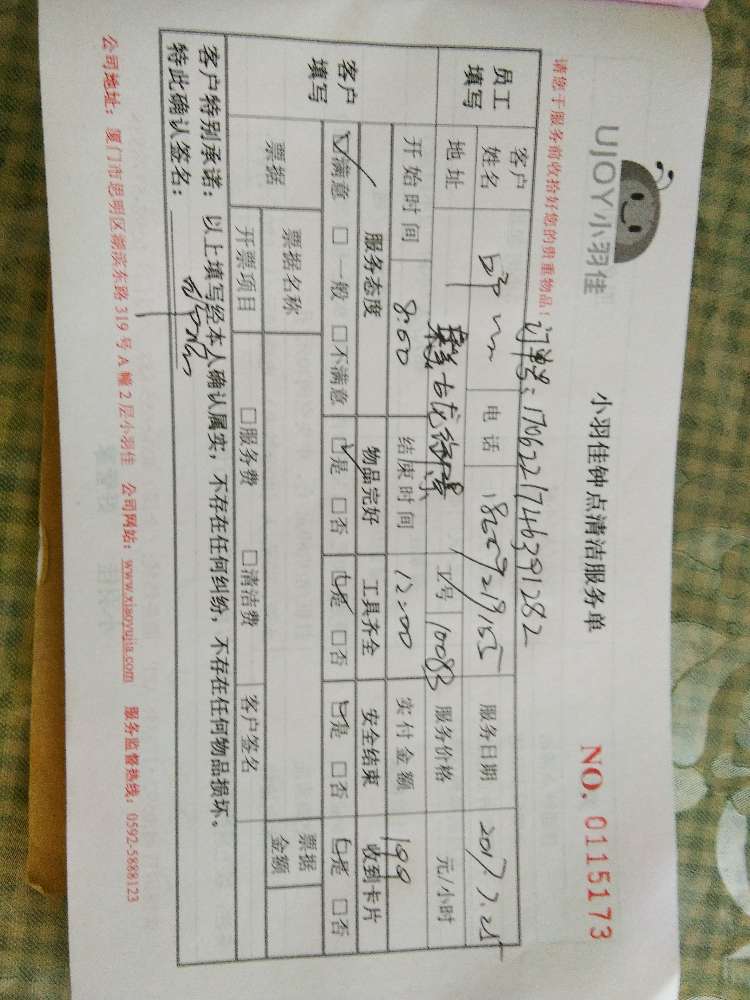 UJOY小羽佳
小羽佳钟点清洁服务单
NO. 0115173
请您于服务前收拾好您的贵重物品!
订单号: 170622174639 1282
员工填写
客户姓名
电话
服务日期 2017.7.25
地址
工号 10083
服务价格 元/小时
客户填写
开始时间 8:00 结束时间 12:00 实付金额
服务态度 物品完好 工具齐全 安全结束 收到卡片
☑满意 □一般 □不满意 ☑是 □否 ☑是 □否 ☑是 □否 ☑是 □否
票据
票据名称
票据金额
开票项目 □服务费 □清洁费 客户签名
客户特别承诺:以上填写经本人确认属实,不存在任何纠纷,不存在任何物品损坏。
特此确认签名:
公司地址:厦门市思明区湖滨东路319号A幢2层小羽佳 公司网站:www.xiaoyujia.com 服务监督热线:0592-5888123